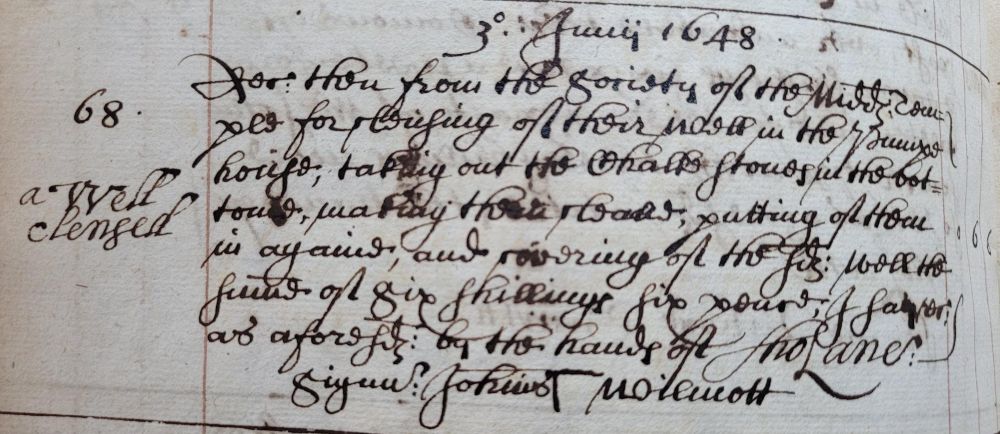 3º. Junij 1648.
68.
Rec: then from the Society of the Midd: Tem-
ple for clensing of their Well in the Pumpe
house, taking out the Chalke stones in the bot=
a Well
tome, making them cleane, putting of them
clensed
in againe, and covering of the sd: Well the
summe of Six shillings six pence, I say rec:
as aforesd: by the hands of Tho Lane.
Signu: Johnis Willmott